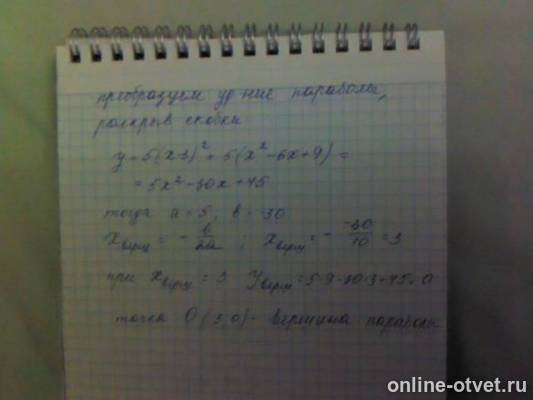 преобразуем ур-ние параболы,
раскрыв скобки
y = 5(x-3)² = 5(x² - 6x + 9) =
= 5x² - 30x + 45
тогда a = 5, b = -30
x верш = - b/2a ; x верш = - -30/10 = 3
при x верш = 3 y верш = 5·9 - 30·3 + 45 = 0
точка O (3,0) - вершина параболы
online-otvet.ru